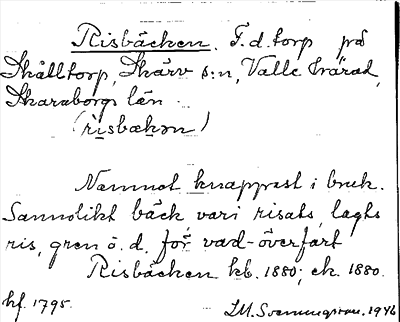 Risbäcken. F.d. torp på
Skålltorp, Skärv s:n, Valle härad,
Skaraborgs län.
(risbækən)
Namnet knappast i bruk.
Sannolikt bäck vari risats, lagts
ris, gren o. d. för vad-överfart
Risbäcken kb. 1880; ek 1880.
hf. 1795. 1946